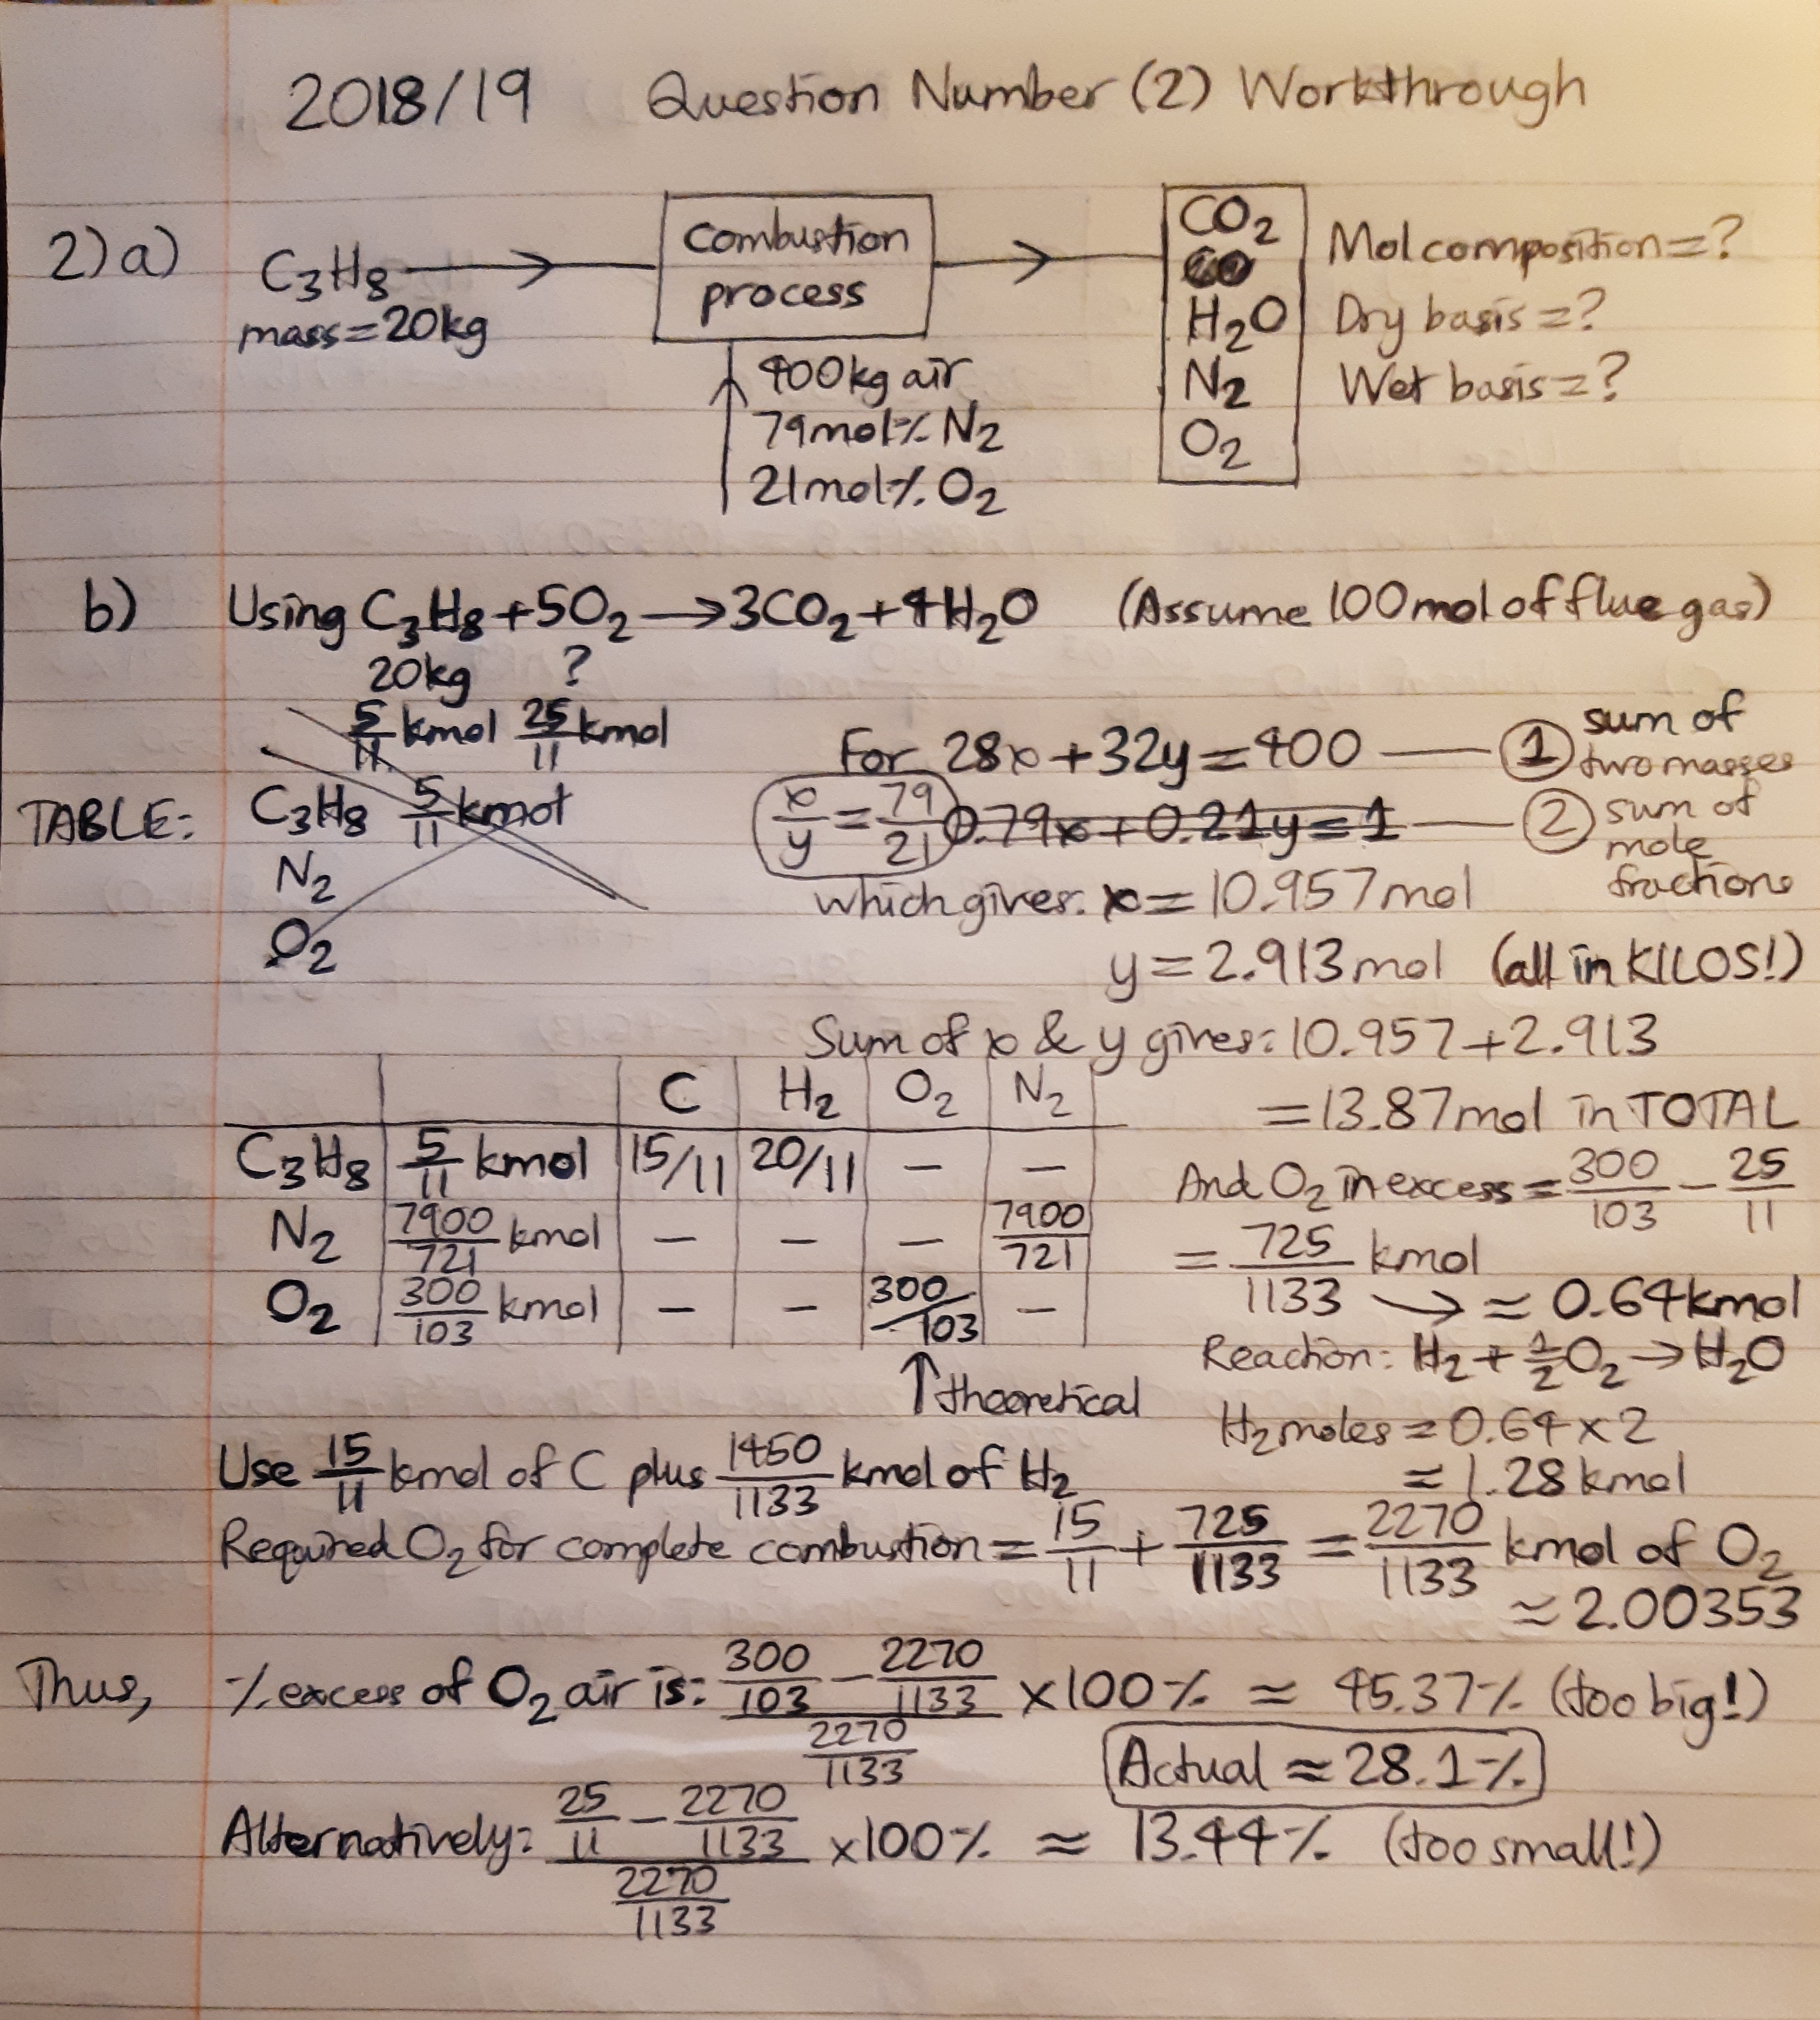 2018/19 Question Number (2) Workthrough
2) a)
C₃H₈
mass=20kg
combustion
process
400kg air
79mol% N₂
21mol% O₂
CO₂
H₂O
N₂
O₂
Mol composition=?
Dry basis=?
Wet basis=?
b) Using C₃H₈+5O₂→3CO₂+4H₂O (Assume 100mol of flue gas)
20kg ?
5/11 kmol 25/11 kmol
TABLE: C₃H₈ 5/11 kmol
N₂
O₂
For 28x+32y=400 — ① sum of two masses
x/y=79/21 0.79x+0.21y=1 — ② sum of mole fractions
which gives: x=10.957mol
y=2.913mol (all in KILOS!)
Sum of x & y gives: 10.957+2.913
=13.87mol in TOTAL
C H₂ O₂ N₂
C₃H₈ 5/11 kmol 15/11 20/11 — —
N₂ 7900/721 kmol — — — 7900/721
O₂ 300/103 kmol — — 300/103 —
↑theoretical
And O₂ in excess=300/103-25/11
=725/1133 kmol
→≈0.64kmol
Reaction: H₂+1/2O₂→H₂O
H₂ moles=0.64×2
=1.28kmol
Use 15/11 kmol of C plus 1450/1133 kmol of H₂
Required O₂ for complete combustion=15/11+725/1133=2270/1133 kmol of O₂
≈2.00353
Thus, % excess of O₂ air is: (300/103-2270/1133)/(2270/1133) ×100% ≈ 45.37% (too big!)
Actual≈28.1%
Alternatively: (25/11-2270/1133)/(2270/1133) ×100% ≈ 13.44% (too small!)